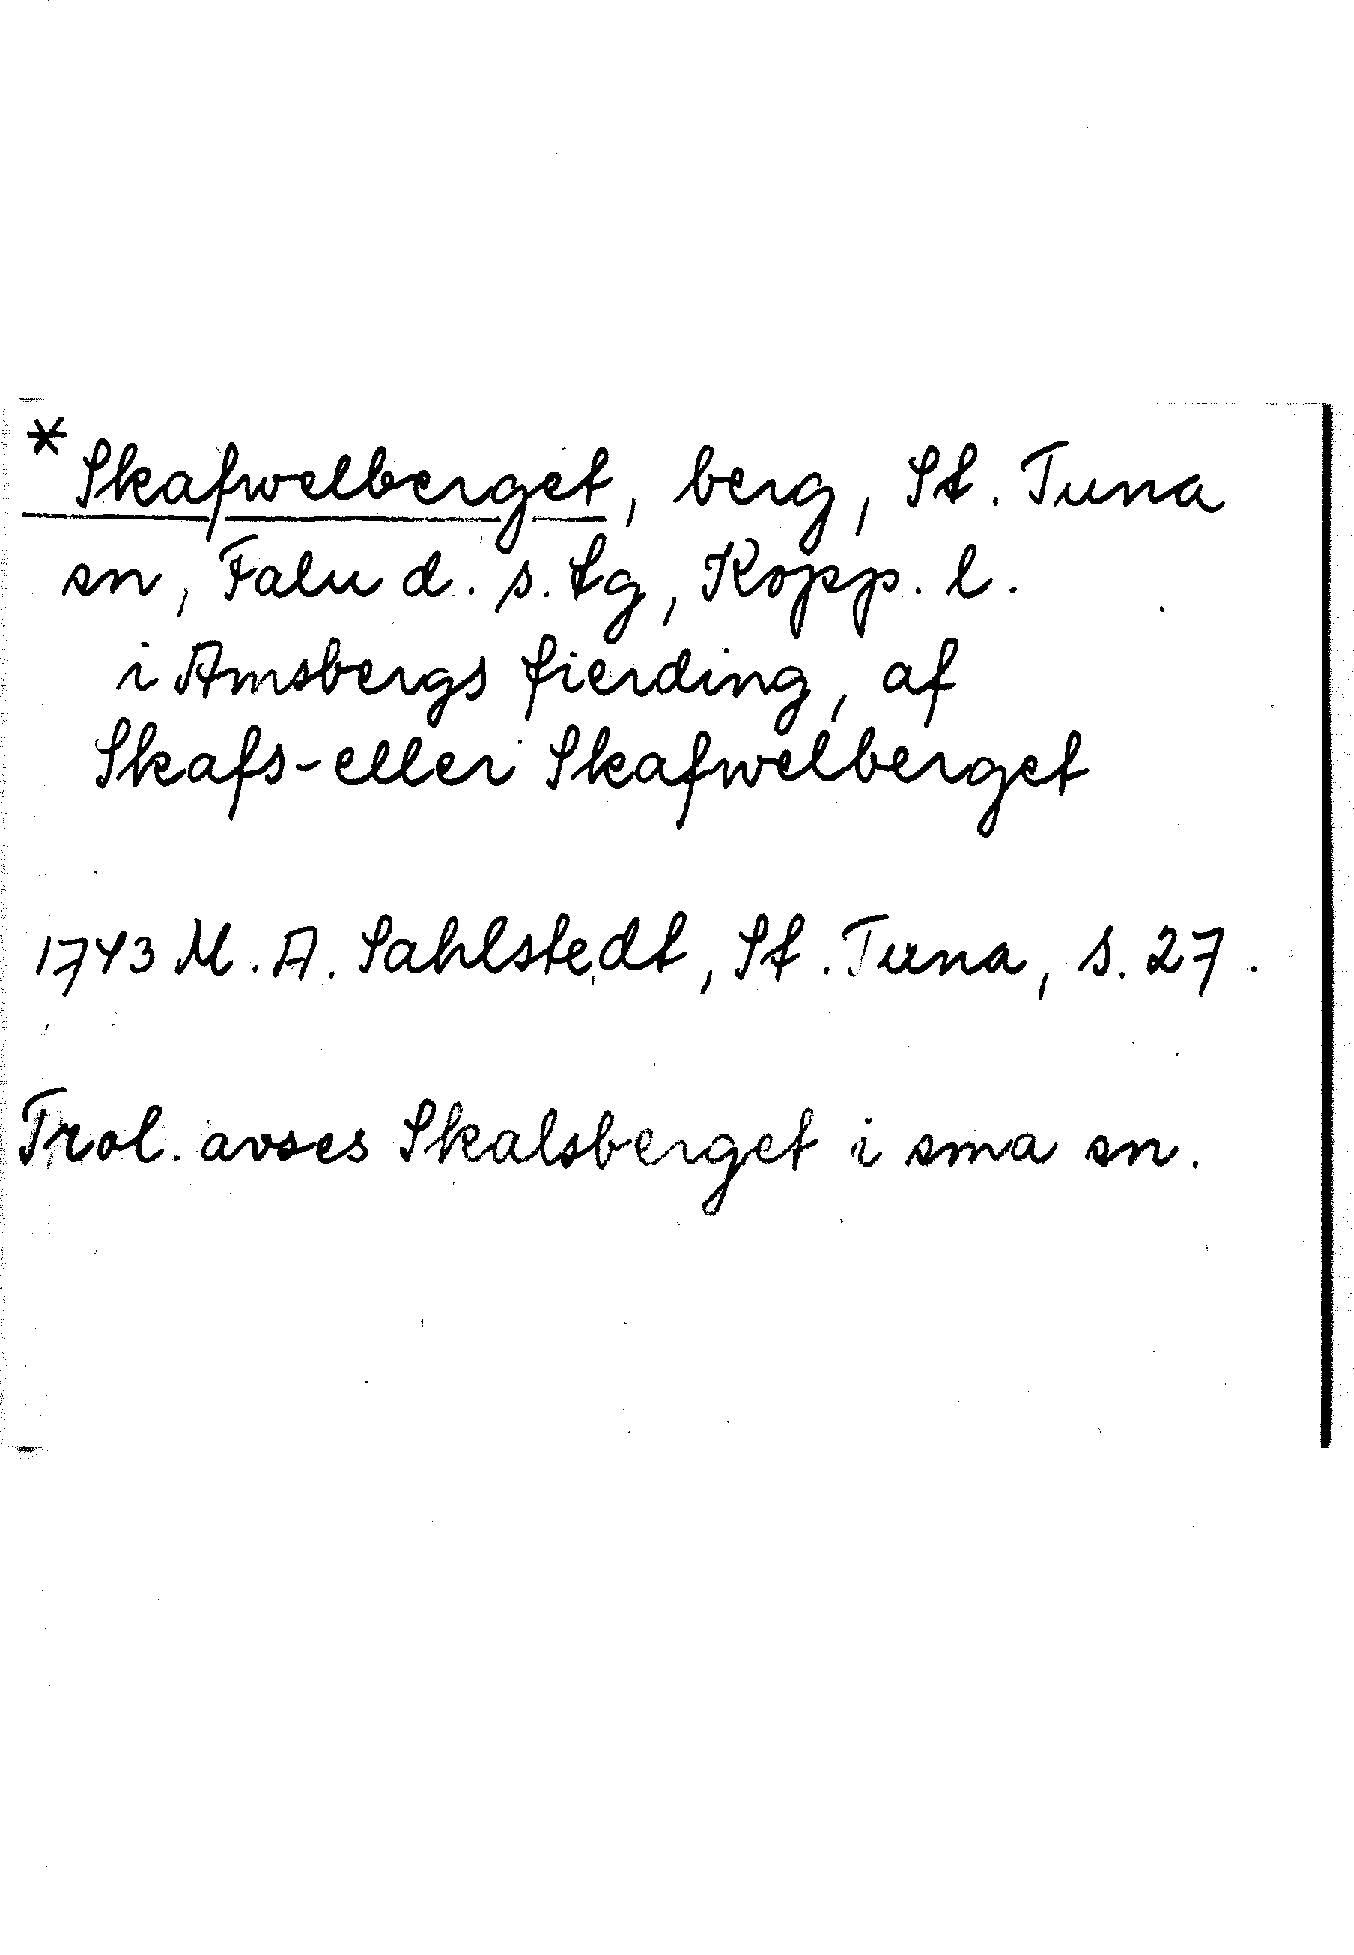 *Skafwelberget, berg, St. Tuna
sn, Falu d. s. tg, Kopp. l.
i Amsbergs fierding, af
Skafs- eller Skafwelberget
1743 M. A. Sahlstedt, St. Tuna, s. 27.
Trol. avses Skalsberget i sma sn.